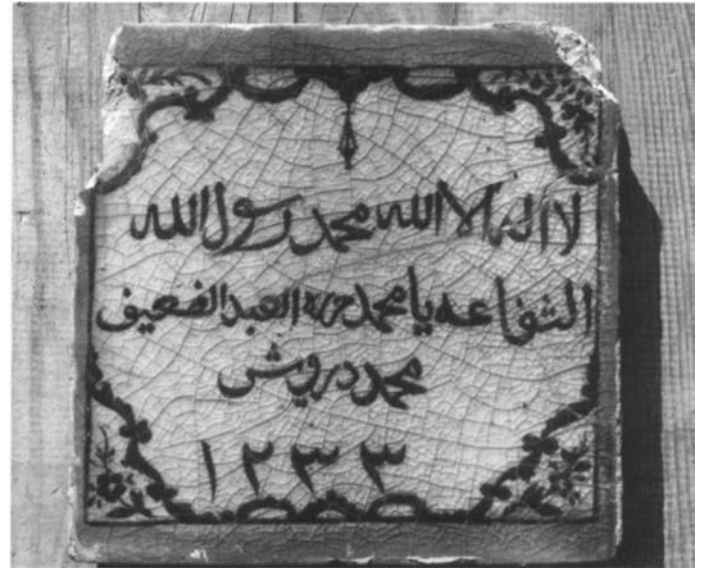 لا اله الا الله محمد رسول الله
الشفاعه يا محمد حرره العبد الضعيف
محمد درويش
١٢٣٣